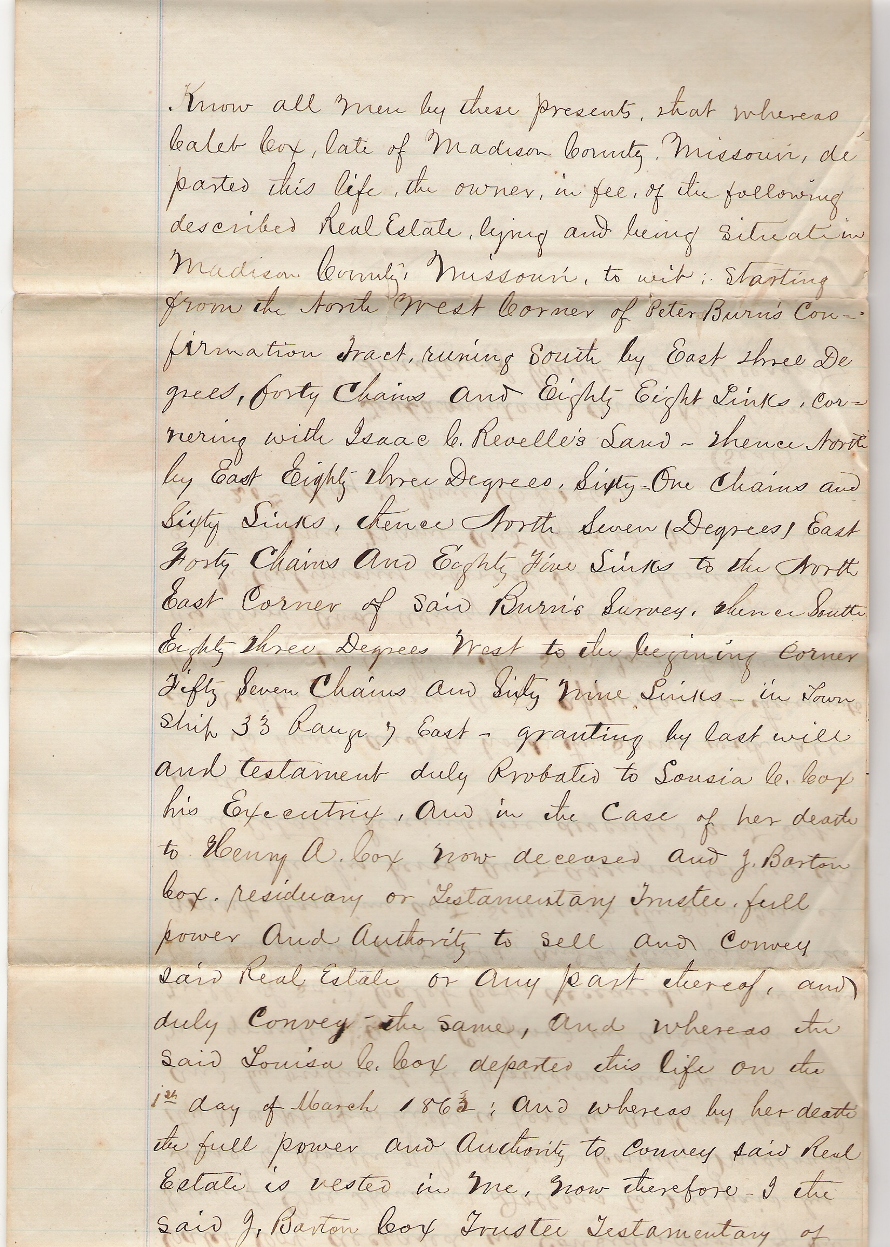 Know all men by these presents, that whereas
Caleb Cox, late of Madison County, Missouri, de
parted this life, the owner, in fee, of the following
described Real Estate, lying and being situate in
Madison County, Missouri, to wit: Starting
from the North West Corner of Peter Burn's Con-
firmation Tract, runing South by East three De
grees, forty Chains and Eighty Eight Links, cor-
nering with Isaac C. Revelle's Land - thence North
by East Eighty three Degrees, Sixty-One Chains and
Sixty Links, thence North Seven (Degrees) East
Forty Chains And Eighty Five Links to the North
East Corner of said Burn's Survey, thence South
Eighty three Degrees West to the begining corner
Fifty Seven Chains and Sixty Nine Links - in Town
ship 33 Range 7 East - granting by last will
and testament duly Probated to Lousia C. Cox
his Executrix, And in the Case of her death
to Henry A. Cox now deceased and J. Barton
Cox. residuary or Testamentary Trustee, full
power And Authority to sell and convey
said Real Estate or Any part thereof, and
duly Convey the same, And whereas the
said Louisa C. Cox departed this life on the
1st day of March 1863; and whereas by her death
the full power and Authority to convey said Real
Estate is vested in Me, Now therefore - I the
said J. Barton Cox Trustee Testamentary of